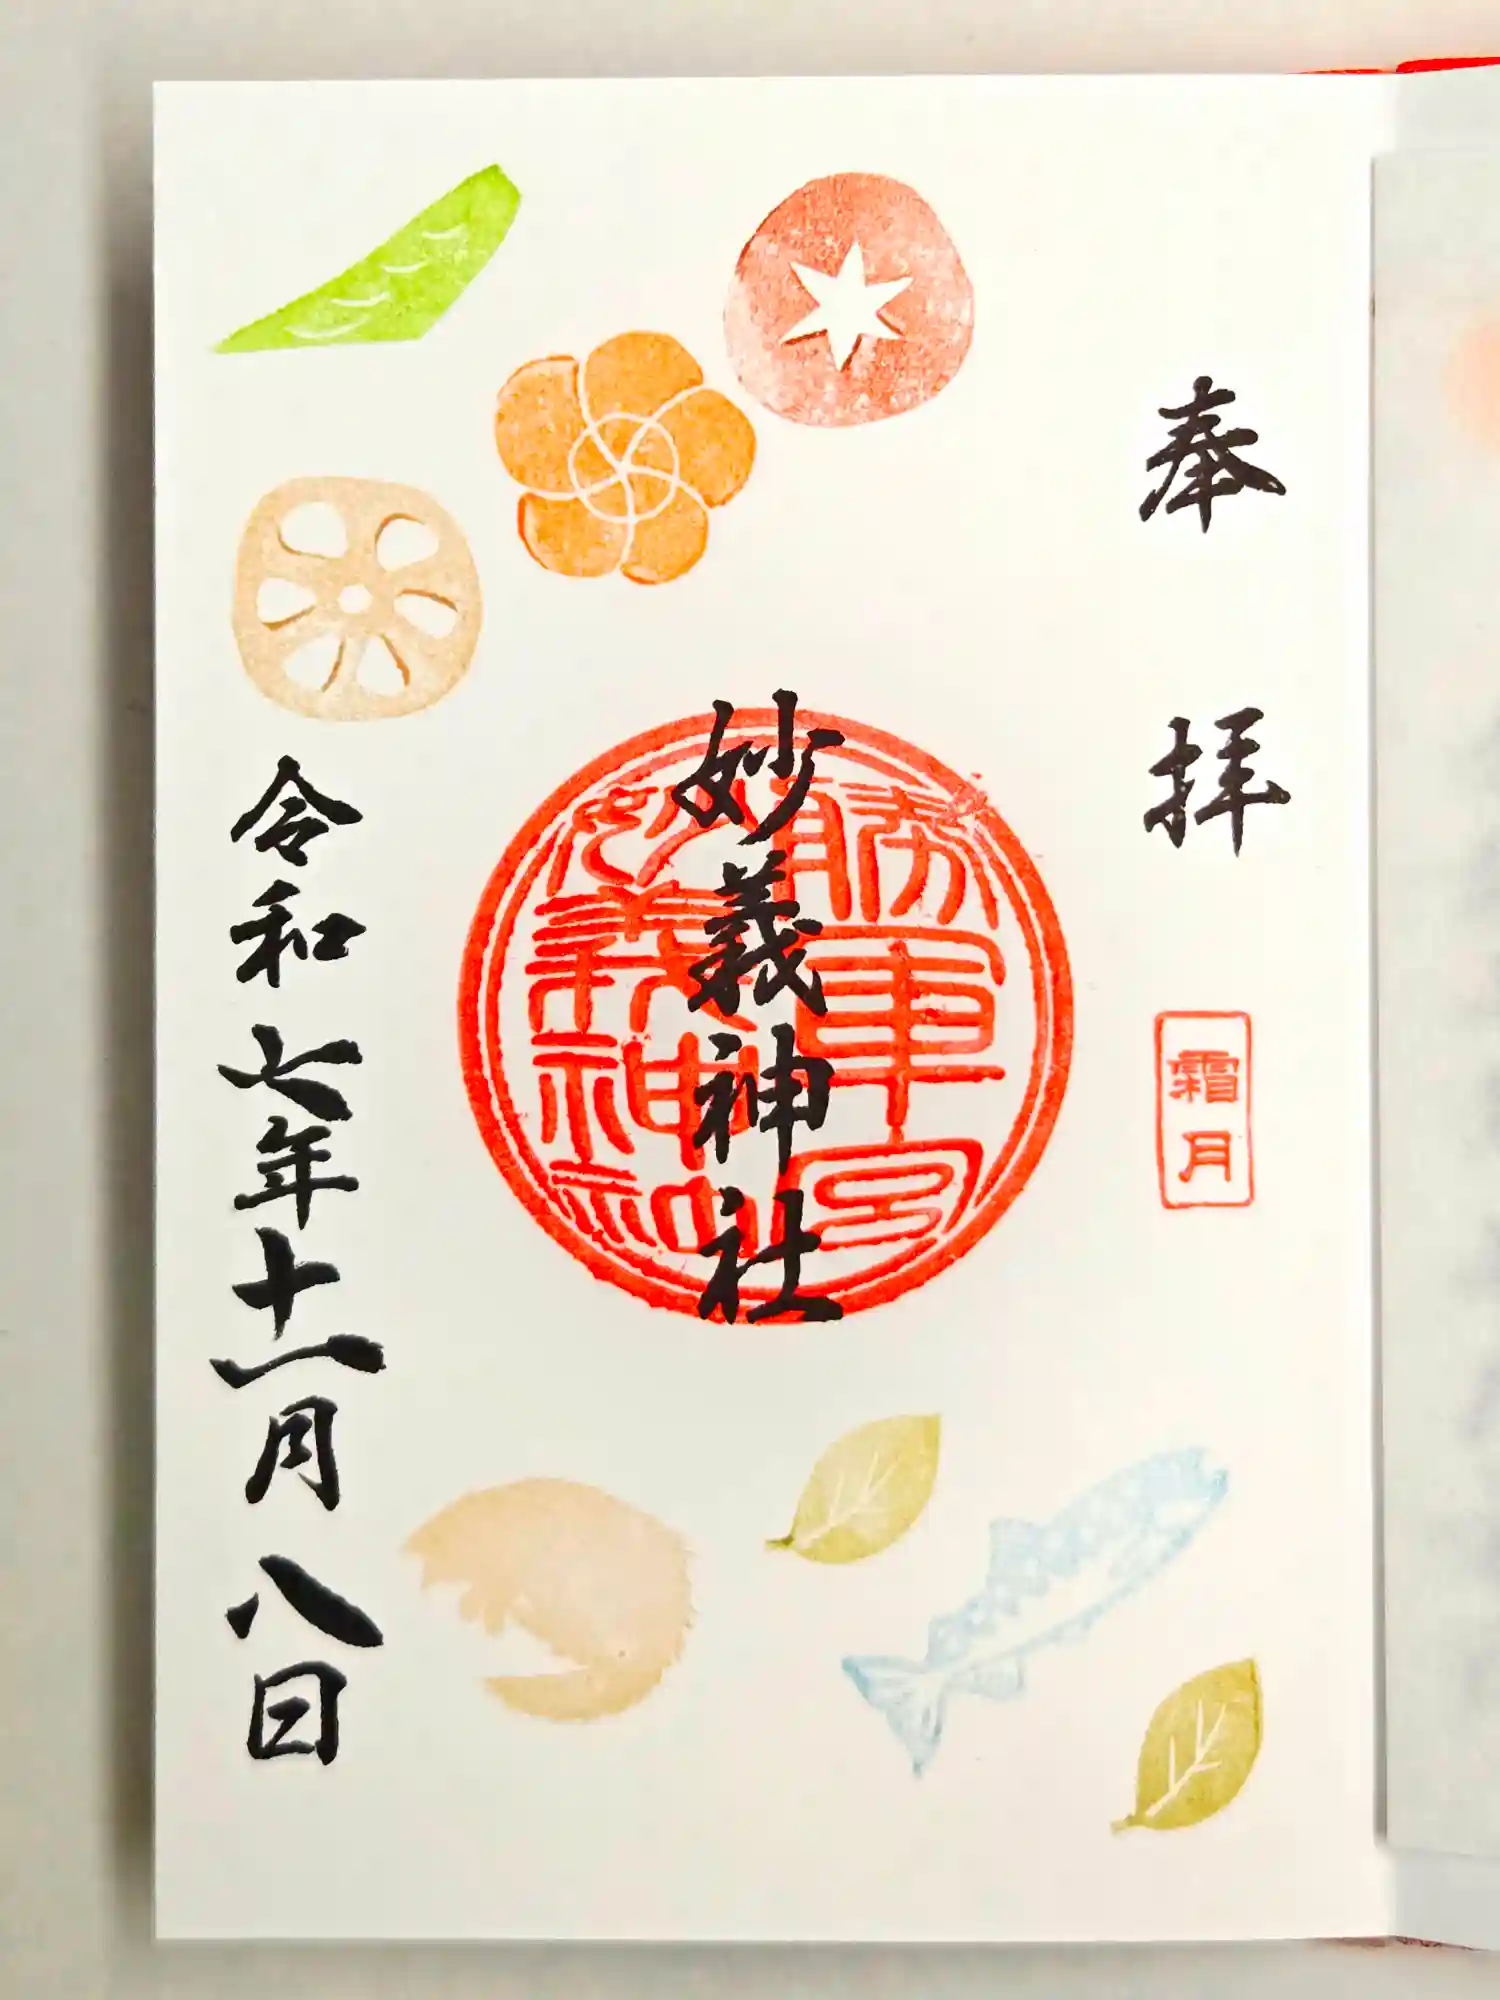 奉拝
霜月
妙義神社
勝軍宮
妙義神社
令和七年十一月八日